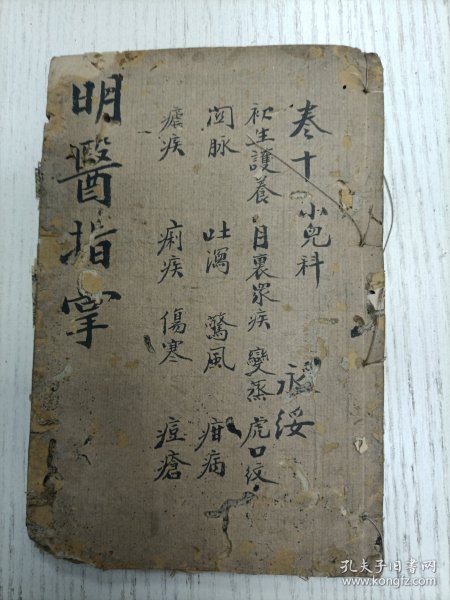 卷十 小兒科
永綏
初生護養 月裏眾疾 變蒸 虎口紋
闵脉 吐瀉 驚風 疳病
瘧疾 痢疾 傷寒 痘瘡
明醫指掌
孔夫子旧书网
www.kongfz.com